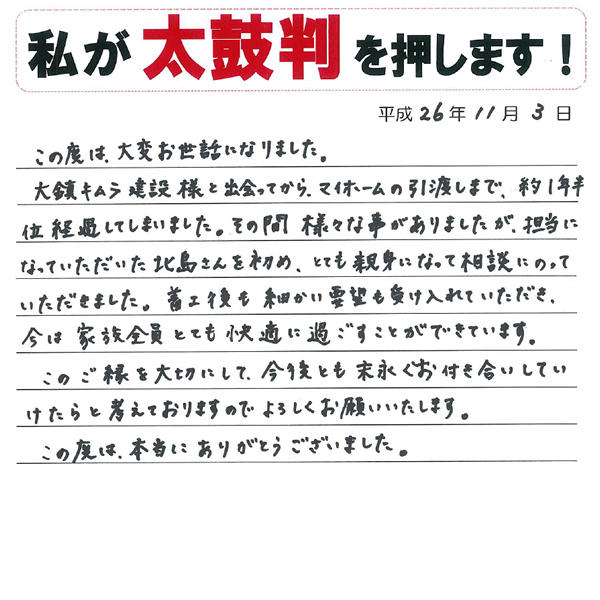 私が太鼓判を押します！
平成26年11月3日
この度は、大変お世話になりました。
大鎮キムラ建設様と出会ってから、マイホームの引渡しまで、約1年半
位経過してしまいました。その間様々な事がありましたが、担当に
なっていただいた北島さんを初め、とても親身になって相談にのって
いただきました。着工後も細かい要望も受け入れていただき、
今は家族全員とても快適に過ごすことができています。
このご縁を大切にして、今後とも末永くお付き合いしてい
けたらと考えておりますのでよろしくお願いいたします。
この度は、本当にありがとうございました。